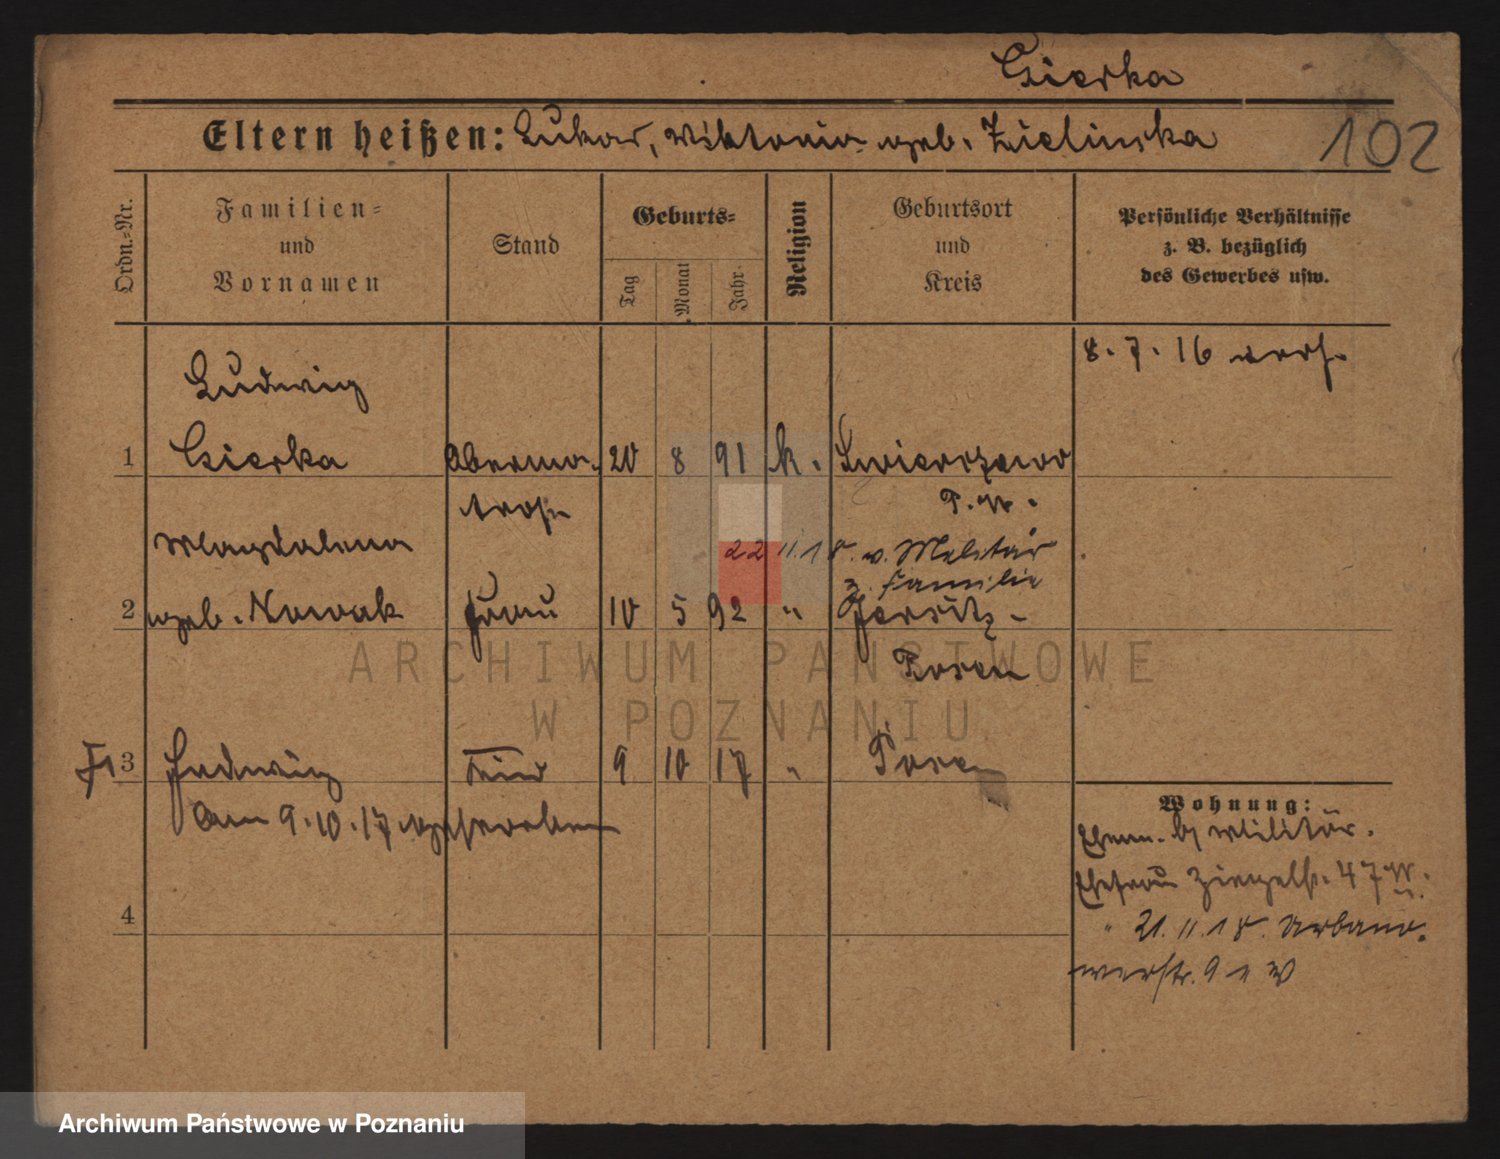 Csierka
102
Eltern heißen: Lukas, Wiktoria geb. Zielinska
Ordn.-Nr.
Familien-
und
Vornamen
Stand
Geburts-
Tag
Monat
Jahr.
Religion
Geburtsort
und
Kreis
Persönliche Verhältnisse
z. B. bezüglich
des Gewerbes usw.
8. 7. 16 verh.
Ludwig
1 Csierka Oberma- 20 8 91 k. Swierszewo
trose P. W.
Magdalena
22 11. 18. v. Militär
z. Familie
2 geb. Nowak Frau 10 5 92 " Jersitz-
Posen
ARCHIWUM PAŃSTWOWE
W POZNANIU
3 Hedwig Kind 9 10 17 " Posen
am 9. 10. 17 gestorben
Wohnung:
Ehem. b/ Militär.
Ehefrau Ziegelstr. 47
4
" 21. 11. 18. Urbano-
werstr. 9
Archiwum Państwowe w Poznaniu